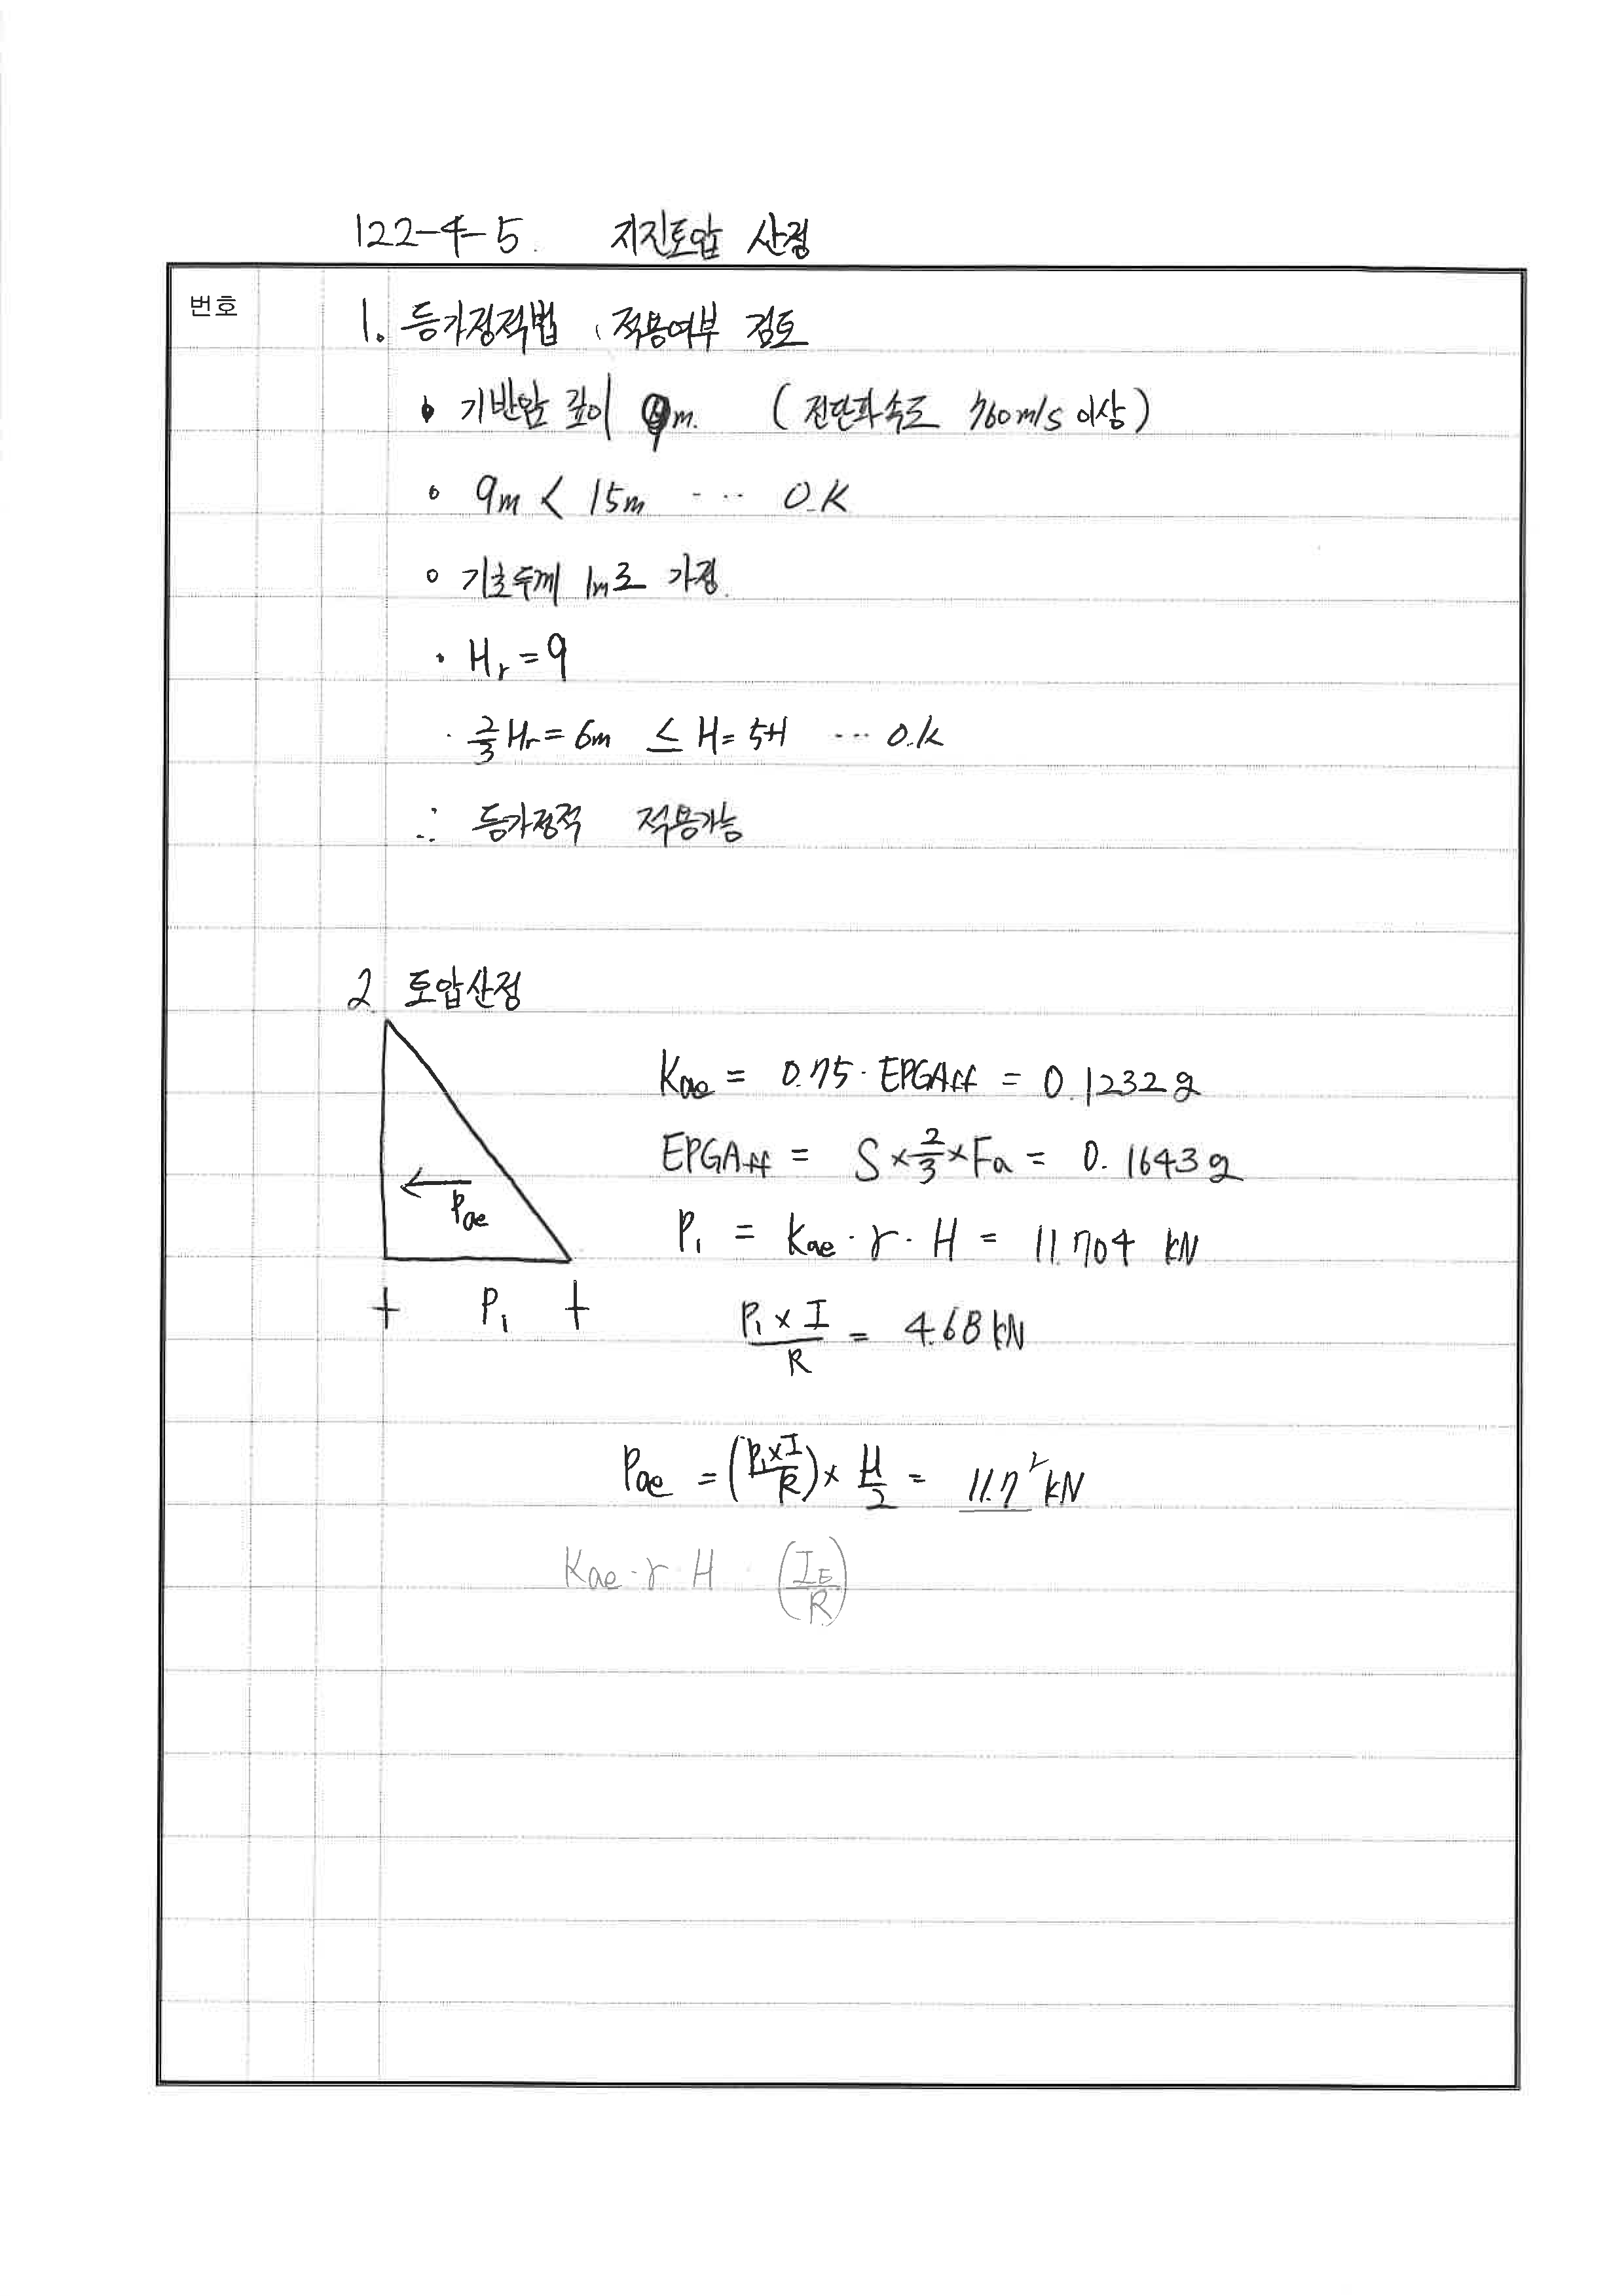 122-4-5. 지진토압 산정
번호
1. 등가정적법 적용여부 검토
• 기반암 깊이 9m. (전단파속도 760m/s 이상)
∘ 9m < 15m ··· O.K
∘ 기초두께 1m로 가정.
· Hr = 9
· 2/3 Hr = 6m ≤ H = 5+1 ··· O.K
∴ 등가정적 적용가능
2 토압산정
Kae = 0.75 · EPGAff = 0.1232g
EPGAff = S × 2/3 × Fa = 0.1643g
Pae
P1 = Kae · r · H = 11.704 kN
P1
P1 × I / R = 4.68 kN
Pae = (P1×I / R) × H/2 = 11.7 kN
Kae · r · H · (IE / R)